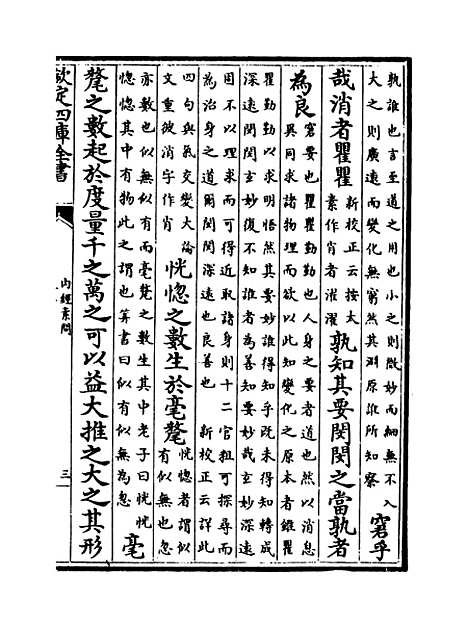 孰誰也言至道之用也小之則微妙而細無不入
大之則廣遠而變化無窮然其淵原誰所知察
窘乎
哉消者瞿瞿
新校正云按太
素作肖者濯濯
孰知其要閔閔之當孰者
為良
窘要也瞿瞿勤勤也人身之要者道也然以消息
異同求諸物理而欲以此知變化之原本者雖瞿
瞿勤勤以求明悟然其要妙誰得知乎既未得知轉成
深遠閔閔玄妙復不知誰者為善知要妙哉玄妙深遠
固不以理求而可得近取諸身則十二官粗可探尋而
為治身之道爾閔閔深遠也良善也 新校正云詳此
四句與氣交變大論
文重彼消字作肖
恍惚之數生於毫氂
恍惚者謂似
有似無也忽
亦數也似無似有而毫氂之數生其中老子曰恍恍
惚惚其中有物此之謂也筭書曰似有似無為忽
毫
氂之數起於度量千之萬之可以益大推之大之其形
欽定四庫全書
内經素問
三